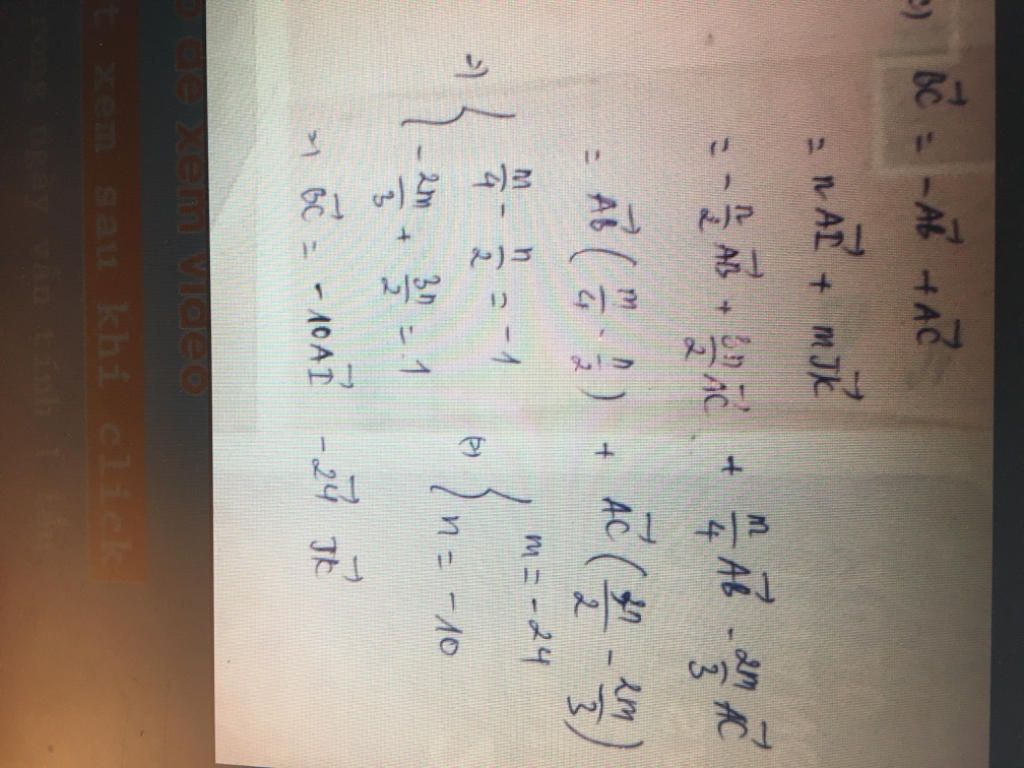 c) \vec{BC} = -\vec{AB} + \vec{AC}
= n\vec{AI} + m\vec{JK}
= -\frac{n}{2}\vec{AB} + \frac{3n}{2}\vec{AC} + \frac{m}{4}\vec{AB} - \frac{2m}{3}\vec{AC}
= \vec{AB}(\frac{m}{4} - \frac{n}{2}) + \vec{AC}(\frac{3n}{2} - \frac{2m}{3})
=> { \frac{m}{4} - \frac{n}{2} = -1 <=> { m = -24
-\frac{2m}{3} + \frac{3n}{2} = 1 n = -10
=> \vec{BC} = -10\vec{AI} - \vec{24} \vec{JK}
để xem video
t xem sau khi click
trong ngày vẫn tính 1 lần,